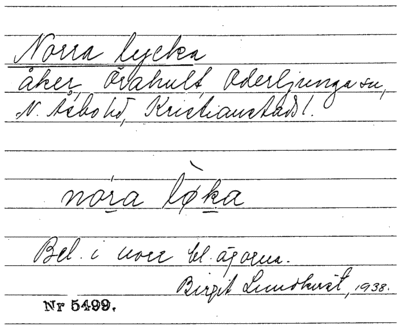 Norra lycka
åker, Örahult, Oderljunga sn,
N. Åsbo hd, Kristianstads l.
nóra lø̀ka
Bel. i norr bl. ägorna.
Birgit Lundkvist, 1938.
Nr 5499.